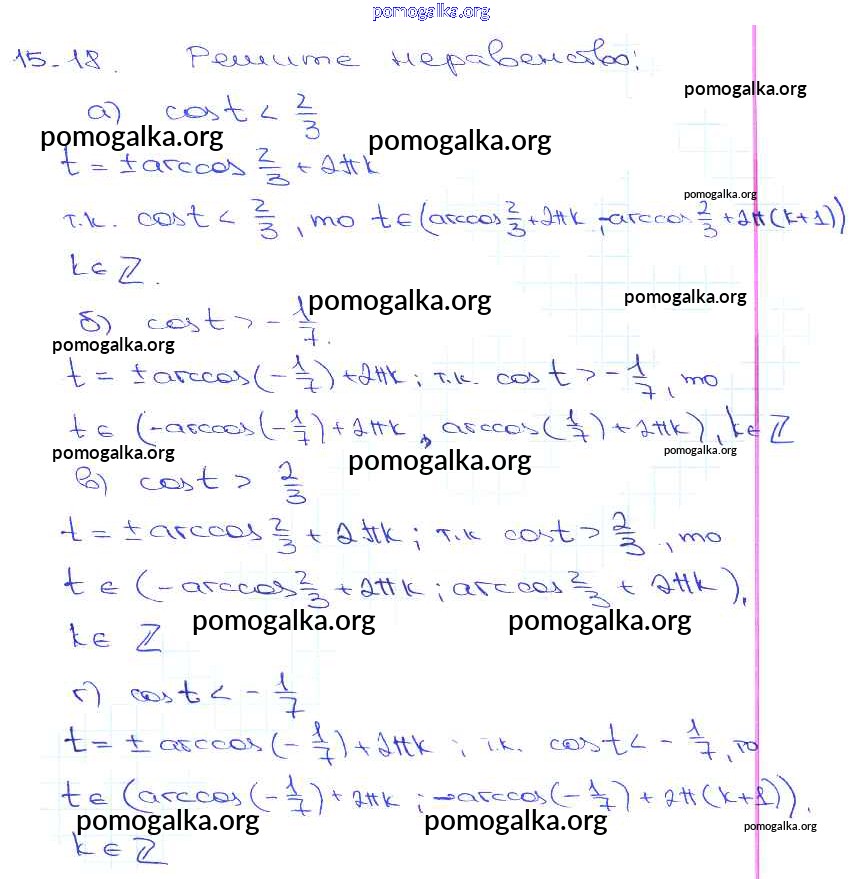 pomogalka.org
15-18. Решите неравенство:
pomogalka.org
а) cos t < 2/3
pomogalka.org pomogalka.org
t = ± arccos 2/3 + 2πk
pomogalka.org
т.к. cos t < 2/3, то t ∈ (arccos 2/3 + 2πk; -arccos 2/3 + 2π(k+1))
k ∈ ℤ.
pomogalka.org pomogalka.org
б) cos t > -1/7.
pomogalka.org
t = ± arccos(-1/7) + 2πk; т.к. cos t > -1/7, то
t ∈ (-arccos(-1/7) + 2πk, arccos(1/7) + 2πk), k ∈ ℤ
pomogalka.org pomogalka.org pomogalka.org
в) cos t > 2/3
t = ± arccos 2/3 + 2πk; т.к cos t > 2/3, то
t ∈ (-arccos 2/3 + 2πk; arccos 2/3 + 2πk),
pomogalka.org pomogalka.org
k ∈ ℤ
г) cos t < -1/7
t = ± arccos(-1/7) + 2πk; т.к. cos t < -1/7, то
t ∈ (arccos(-1/7) + 2πk; -arccos(-1/7) + 2π(k+1)).
pomogalka.org pomogalka.org pomogalka.org
k ∈ ℤ